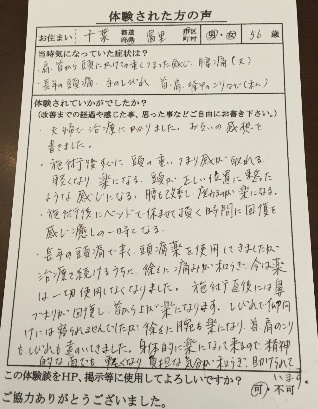 体験された方の声
お住まい 千葉 都道府県 富里 市区町村 男・女 56歳
当時気になっていた症状は?
・肩、首から頭にかけての重くつまった感じ、腰痛(夫)
・長年の頭痛、手のしびれ、首、肩、のこりなど(本人)
体験されていかがでしたか?
(改善までの経過や感じた事、思った事などご自由にお書き下さい。)
・夫婦で治療にかかりました。お互いの感想を
書きました。
・施術後すぐに頭の重いつまり感が取れる。
軽くなり楽になる。頭が正しい位置に整った
ような感じになる。腰も改善し、楽になる。
・施術後にベッドで休ませて頂く時間に回復を
感じ癒しの一時になる。
・長年の頭痛で辛く、頭痛薬を使用してきましたが
治療を続けるうちに、徐々に痛みが和らぎ、今は薬
は一切使用しなくなりました。施術直後には鼻
づまりが回復し、首から上が楽になります。しびれで仰向
けには寝られませんでしたが徐々に腕も楽になり、首、肩のこり
もしびれも良いできました。身体的に楽になって来るので、精神
的な面でも軽くなり負担な気分が和らぎ、助けられて
います。
この体験談をHP、掲示等に使用してよろしいですか? 可・不可
ご協力ありがとうございました。